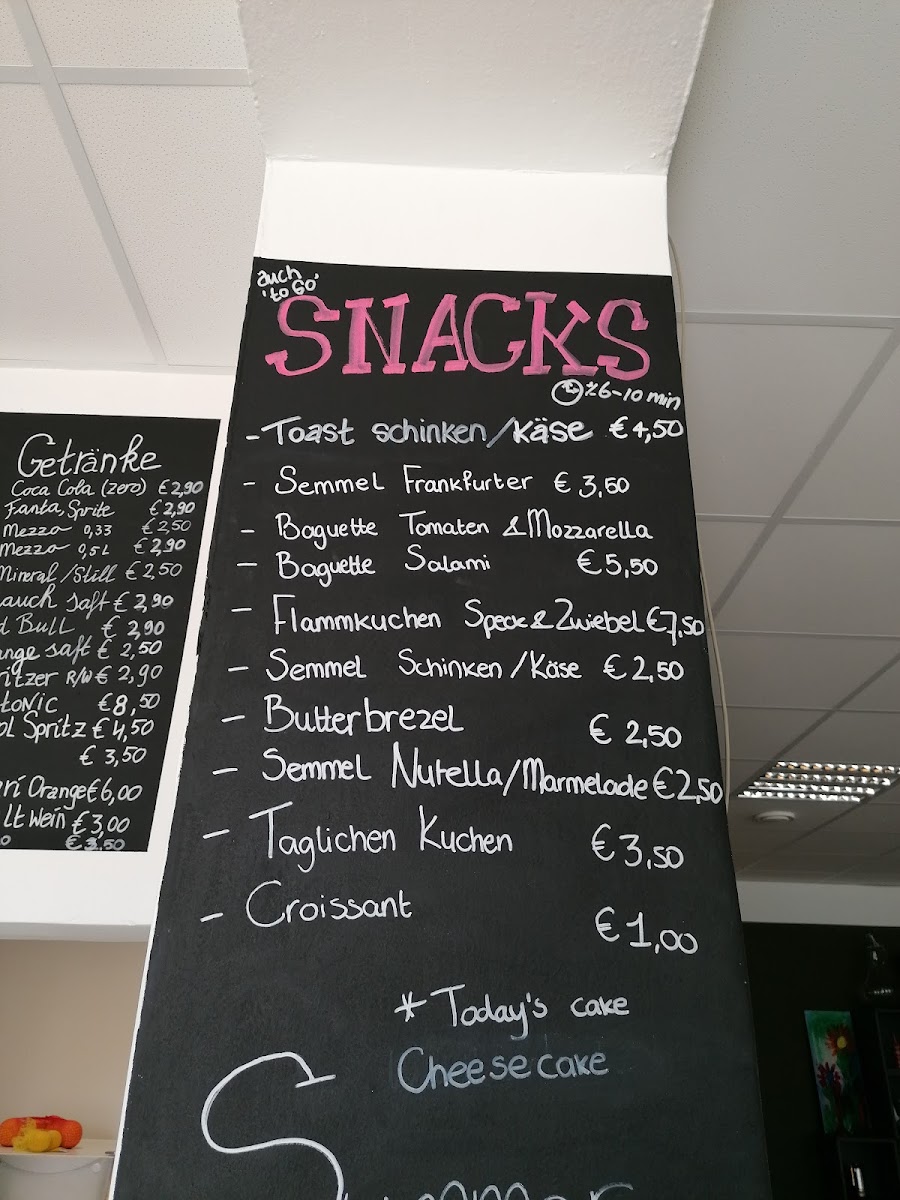 auch
'to Go'
SNACKS
6-10 min
- Toast schinken/Käse €4,50
- Semmel Frankfurter €3,50
- Baguette Tomaten & Mozzarella
- Baguette Salami €5,50
- Flammkuchen Speck & Zwiebel €7,50
- Semmel Schinken/Käse €2,50
- Butterbrezel €2,50
- Semmel Nutella/Marmelade €2,50
- Taglichen Kuchen €3,50
- Croissant €1,00
*Today's cake
Cheesecake
Getränke
Coca Cola (zero) €2,90
Fanta, Sprite €2,90
Mezzo 0,33 €2,50
Mezzo 0,5L €2,90
Mineral/Still €2,50
auch Saft €2,90
d Bull €2,90
ange saft €2,50
ritzer R/W €2,90
tonic €8,50
ol Spritz €4,50
€3,50
eri Orange €6,00
lt Wein €3,00
€3,50